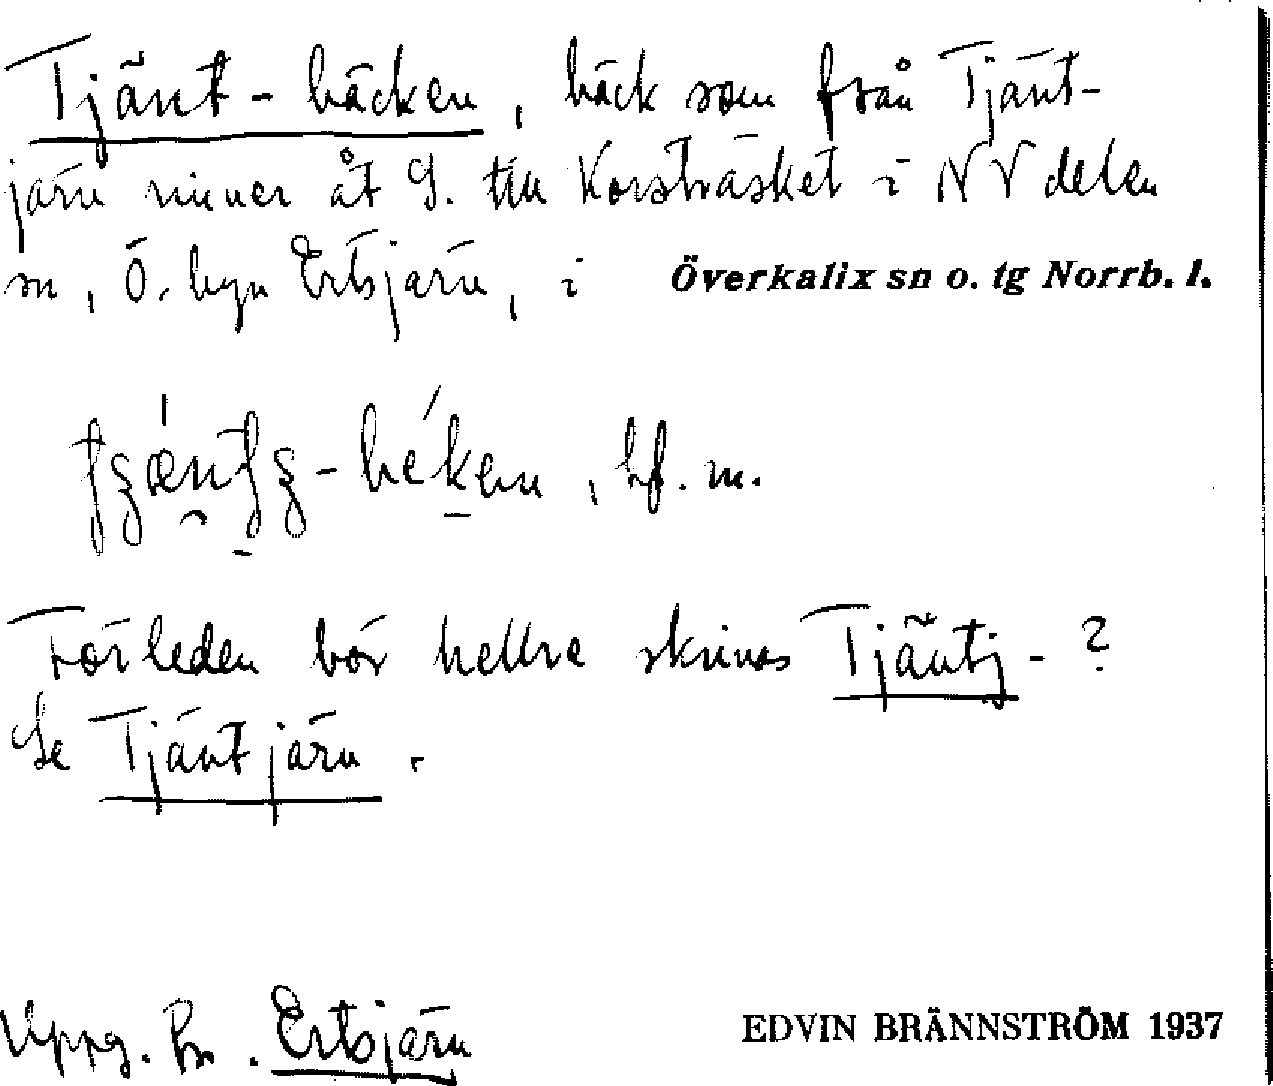 Tjänt-bäcken, bäck som från Tjänt-
järn rinner åt S. till Korsträsket i NV delen
sn, Ö. byn Ertsjärn, i Överkalix sn o. tg Norrb. l.
-bék̠en, bf. m.
Förleden bör hellre skrivas Tjäntj-?
Se Tjäntjärn.
Uppg. fr. Ertsjärn
EDVIN BRÄNNSTRÖM 1937